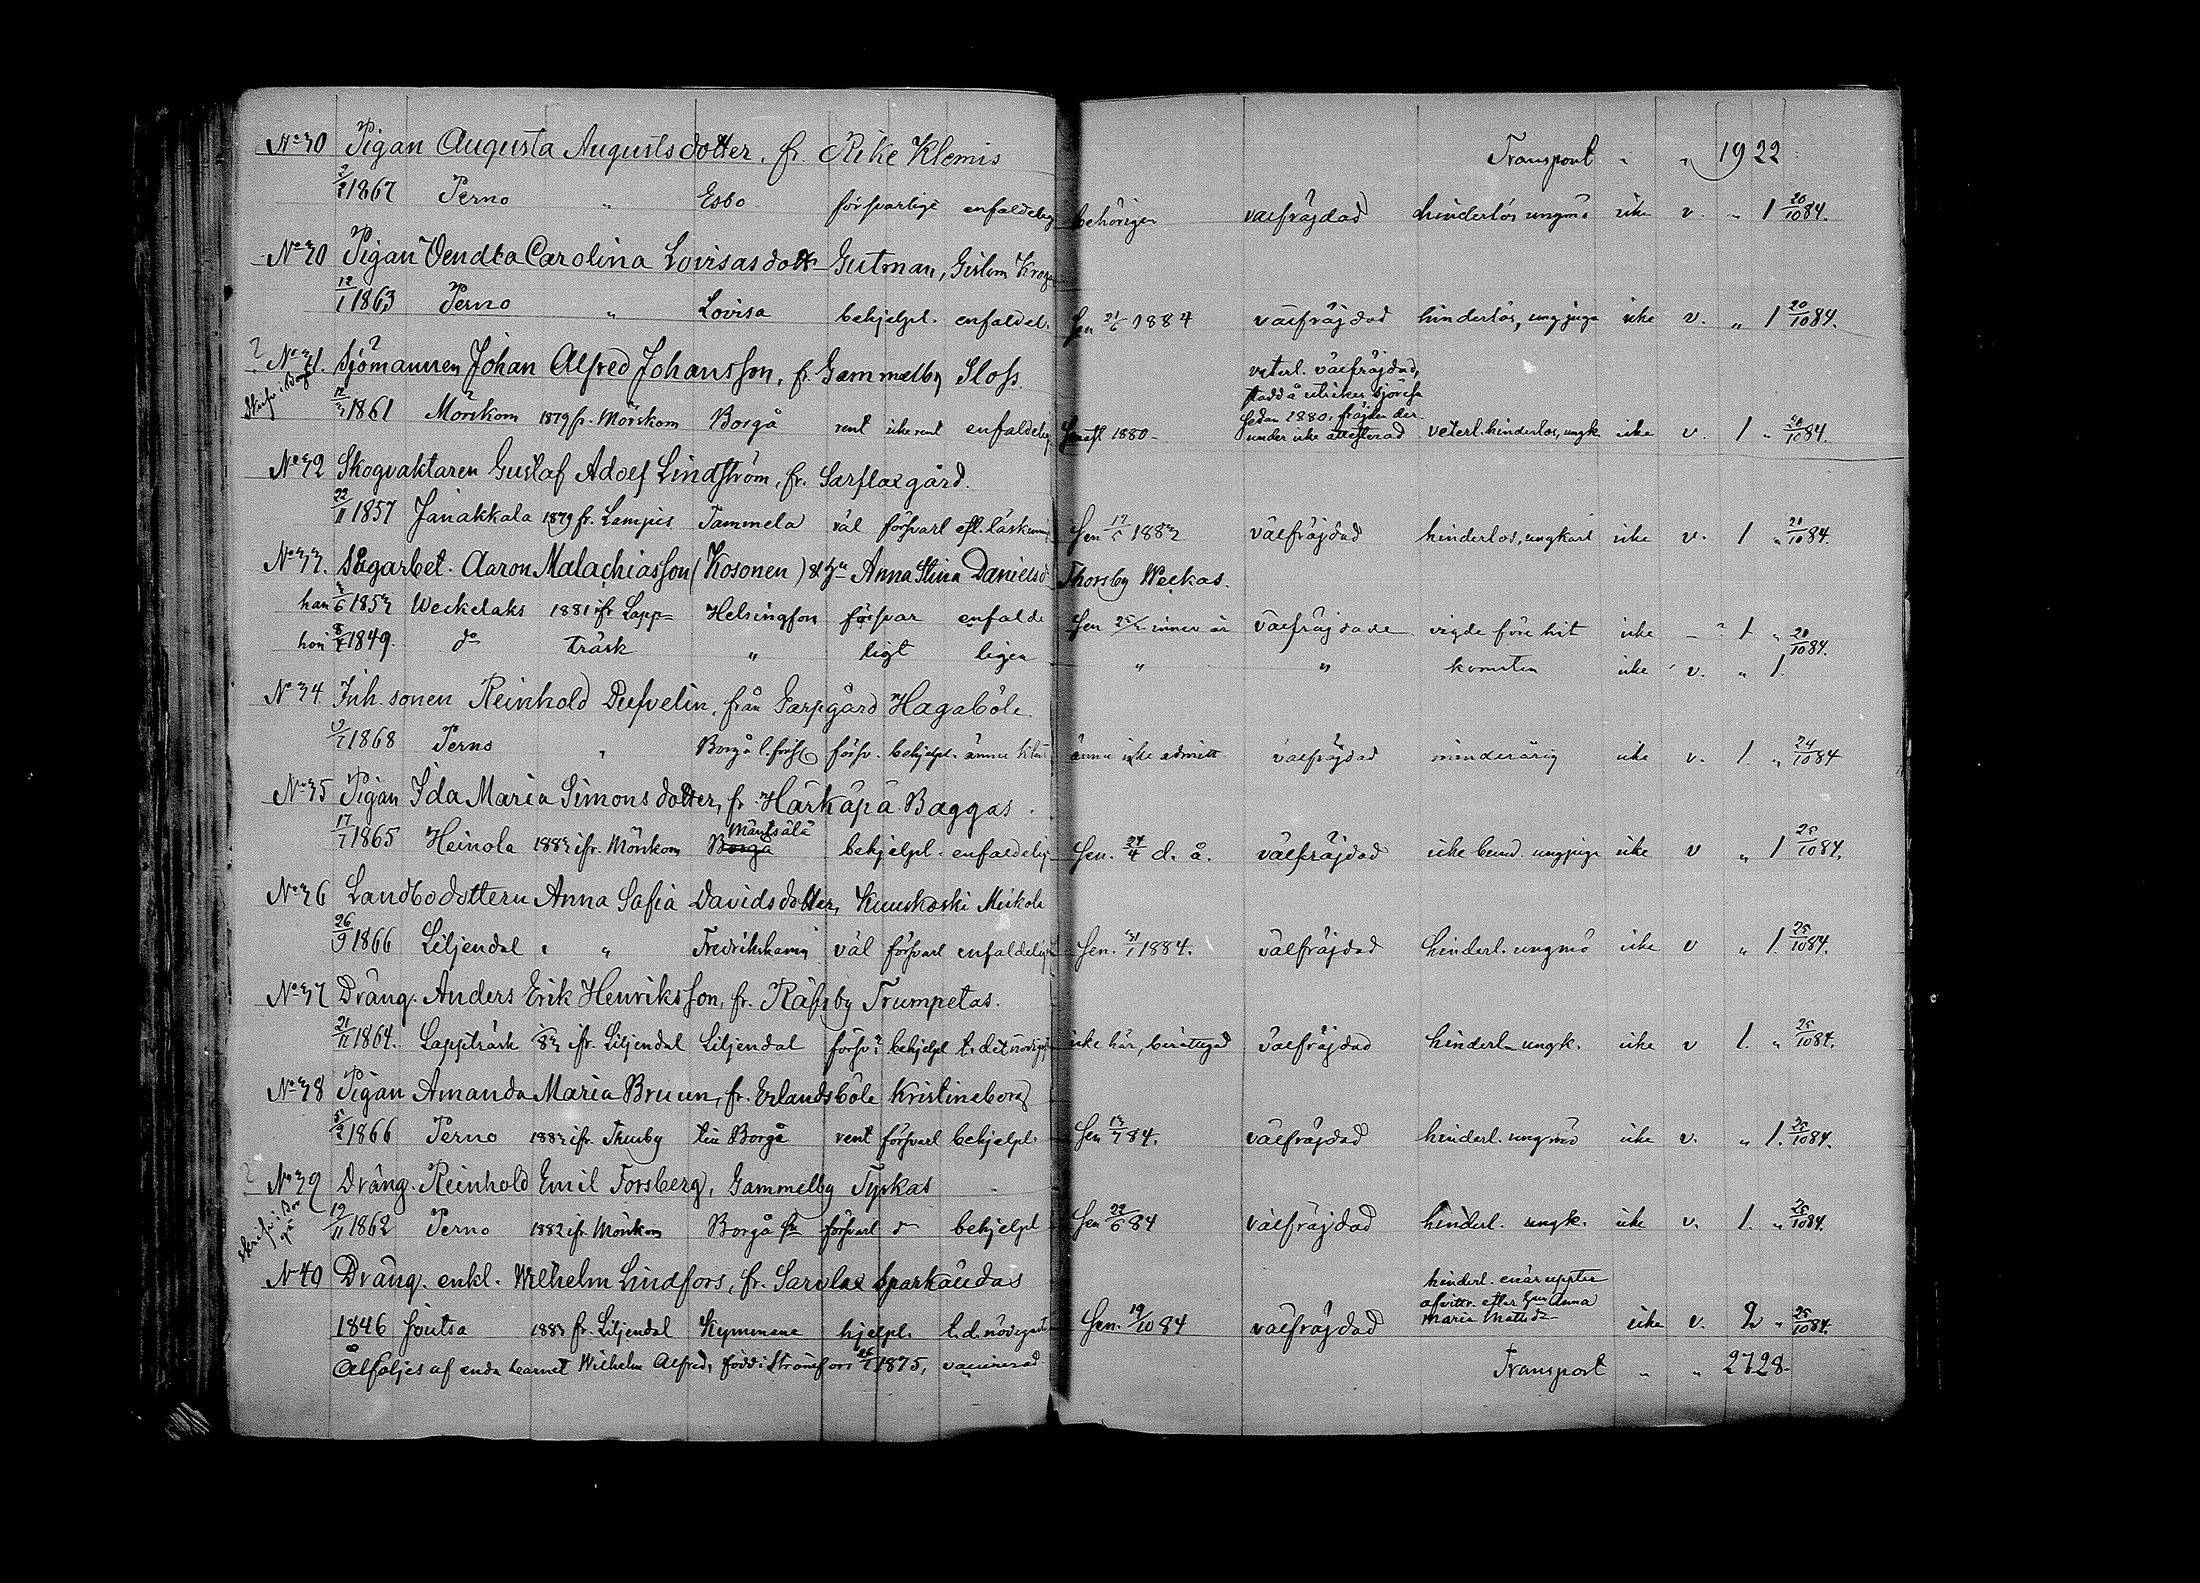 No 30 Pigan Augusta Augustsdotter, fr. Rike Klemis
Transport " " 1922
2/2 1867 Perno " Esbo försvarligt enfaldelig behörigen välfräjdad hinderlös ungmö icke v. " 1 20/10 84.
No 30 Pigan Vendla Carolina Lovisasdotr Gutman, Gislom Kroga
12/1 1863 Perno " Lovisa behjelpl. enfaldel. sen 21/6 1884 välfräjdad hinderlös, ungpiga icke v. " 1 20/10 84.
? No 31. Sjömannen Johan Alfred Johansson, fr. Gammelby Sloss.
veterl. välfräjdad,
stadd å utrikes sjöresa
sedan 1880, fräjden der-
12/3 1861 Mörskom 1879 fr. Mörskom Borgå rent icke rent enfaldelig 1880. under icke attesterad veterl. hinderlös, ungk. icke v. 1 " 20/10 84.
No 32 Skogvaktaren Gustaf Adolf Lindström, fr. Sarflax gård.
22/11 1857 Janakkala 1879 fr. Lampis Tammela väl försvarl efl. läskunni sen 17/5 1883 välfräjdad hinderlös, ungkarl icke v. 1 " 21/10 84.
No 33. Sågarbet. Aaron Malachiasson (Kosonen) & hu Anna Stina Danielsd Thorsby Weckas.
han 2/6 1853 Weckelaks 1881 ifr. Lapp= Helsingfors försvar enfalde sen 25/2 innev. år välfräjdade vigde före hit icke - ? 1 " 20/10 84.
hon 1849. do träsk " ligt ligen " " komsten icke v. " 1.
No 34 Inh. sonen Reinhold Dufvelin, från Garpgård Hagaböle.
1868 Perno " Borgå l. förs försv. behjelpl. ännu ännu icke admitt välfräjdad minderårig icke v. 1. " 24/10 84
No 35 Pigan Ida Maria Simonsdotter, fr. Härkäpä Baggas.
Mäntsälä
17/7 1865 Heinola 1883 ifr. Mörskom Borgå behjelpl. enfaldelig sen. 27/4 d. å. välfräjdad icke bund. ungpiga icke v " 1 25/10 84.
No 36 Landbodottern Anna Sofia Davidsdotter, Kuuskoski Mickols
26/9 1866 Liljendal " " Fredrikshamn väl försvarl enfaldelig sen. 31/7 1884. välfräjdad hinderl. ungmö icke v " 1. 25/10 84.
No 37 Dräng. Anders Erik Henriksson, fr. Räfsby Trumpetas.
21/11 1864. Lappträsk 83 ifr. Liljendal Liljendal försv. behjelpl t. det nödigste icke här, berättigad välfräjdad hinderl. ungk. icke v 1. " 25/10 84.
No 38 Pigan Amanda Maria Bruun, fr. Erlandsböle Kristineborg
5/2 1866 Perno 1883 ifr. Thusby till Borgå rent försvarl behjelpl. sen 13/7 84. välfräjdad hinderl. ungmö icke v. " 1. 25/10 84.
? No 39 Dräng. Reinhold Emil Forsberg, Gammelby Tyskas
19/11 1862 Perno 1882 ifr. Mörskom Borgå försvarl do behjelpl sen 22/6 84 välfräjdad hinderl. ungk. icke v. 1. " 25/10 84.
No 40 Dräng. enkl. Wilhelm Lindfors, fr. Sarvlax Sparkändas
hinderl. enär uppter
afvittr. efter hun Anna
1846 Joutsa 1883 fr. Liljendal Kymmene hjelpl. t. d. nödigaste sen. 19/10 84 välfräjdad Maria Mattsdr icke v. 2 " 25/10 84.
Åtföljes af enda barnet Wilhelm Alfred, född i Strömfors 26/1 1875, vaccinerad.
Transport " " 2728.